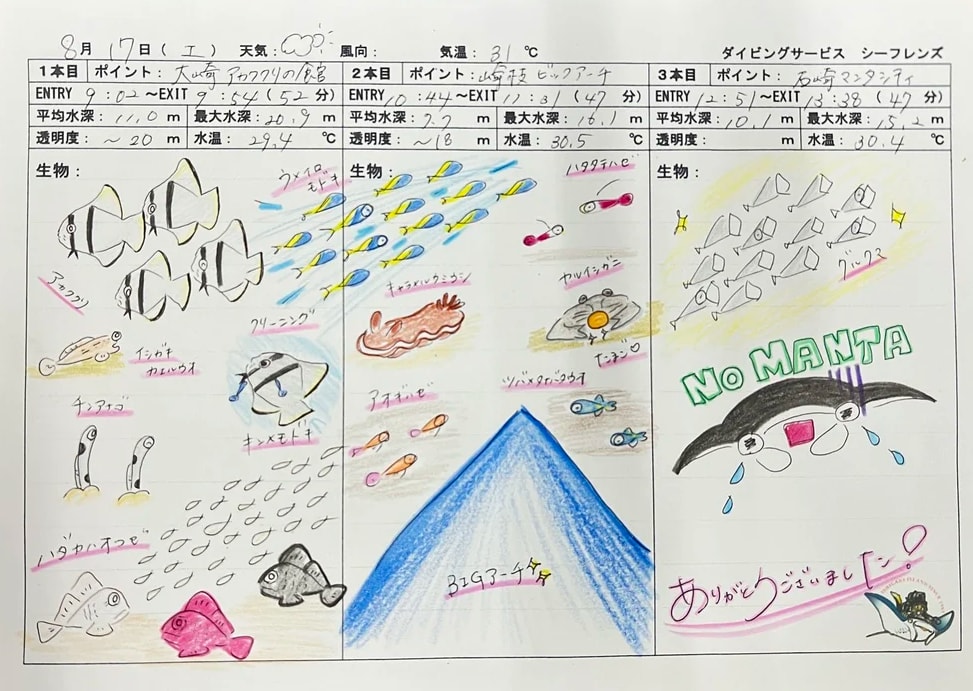 8月 17日( 土 ) 天気: 風向: 気温: 31 ℃ ダイビングサービス シーフレンズ
1本目 ポイント: 大崎 アカククリの館
ENTRY 9:02~EXIT 9:54(52 分)
平均水深: 11.0 m 最大水深: 20.9 m
透明度: ~20 m 水温: 29.4 ℃
生物:
ウメイロ
モドキ
アカククリ
クリーニング
イシガキ
カエルウオ
チンアナゴ
キンメモドキ
ハダカハオコゼ
2本目 ポイント: 崎枝 ビックアーチ
ENTRY 10:44~EXIT 11:31(47 分)
平均水深: 7.7 m 最大水深: 16.1 m
透明度: ~18 m 水温: 30.5 ℃
生物:
ハタタテハゼ
キャラメルウミウシ
ヤルイシガニ
たまご♡
アオギハゼ
ツバメタナバタウオ
BIGアーチ
3本目 ポイント: 石崎マンタシティ
ENTRY 12:51~EXIT 13:38(47 分)
平均水深: 10.1 m 最大水深: 15.2 m
透明度: m 水温: 30.4 ℃
生物:
グルクマ
NO MANTA
ありがとうございました!